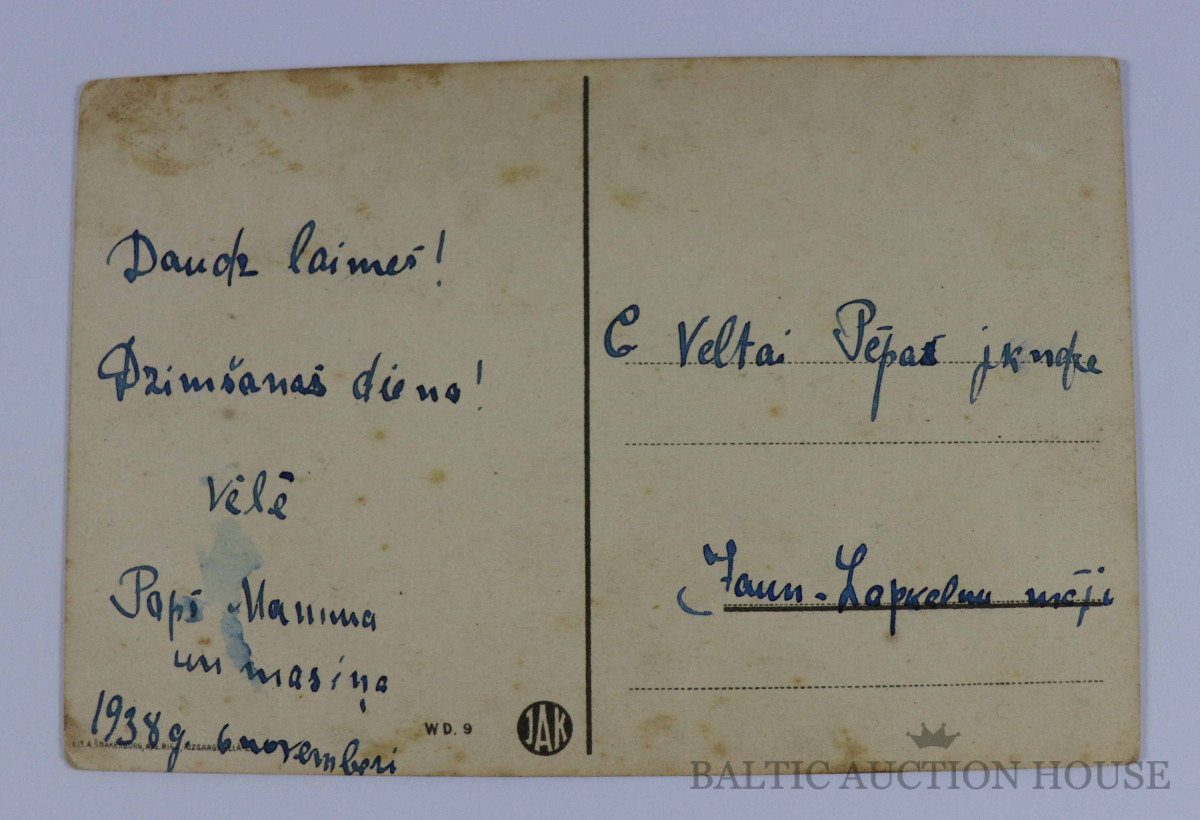 Daudz laimes!
Dzimšanas diena!
Vēlē
Papi Mamma
un masiņa
1938g. 6 novemberi
WD. 9
JAK
C Veltai Pēpas jkndze
Jaun-Lapkalnu māji
BALTIC AUCTION HOUSE